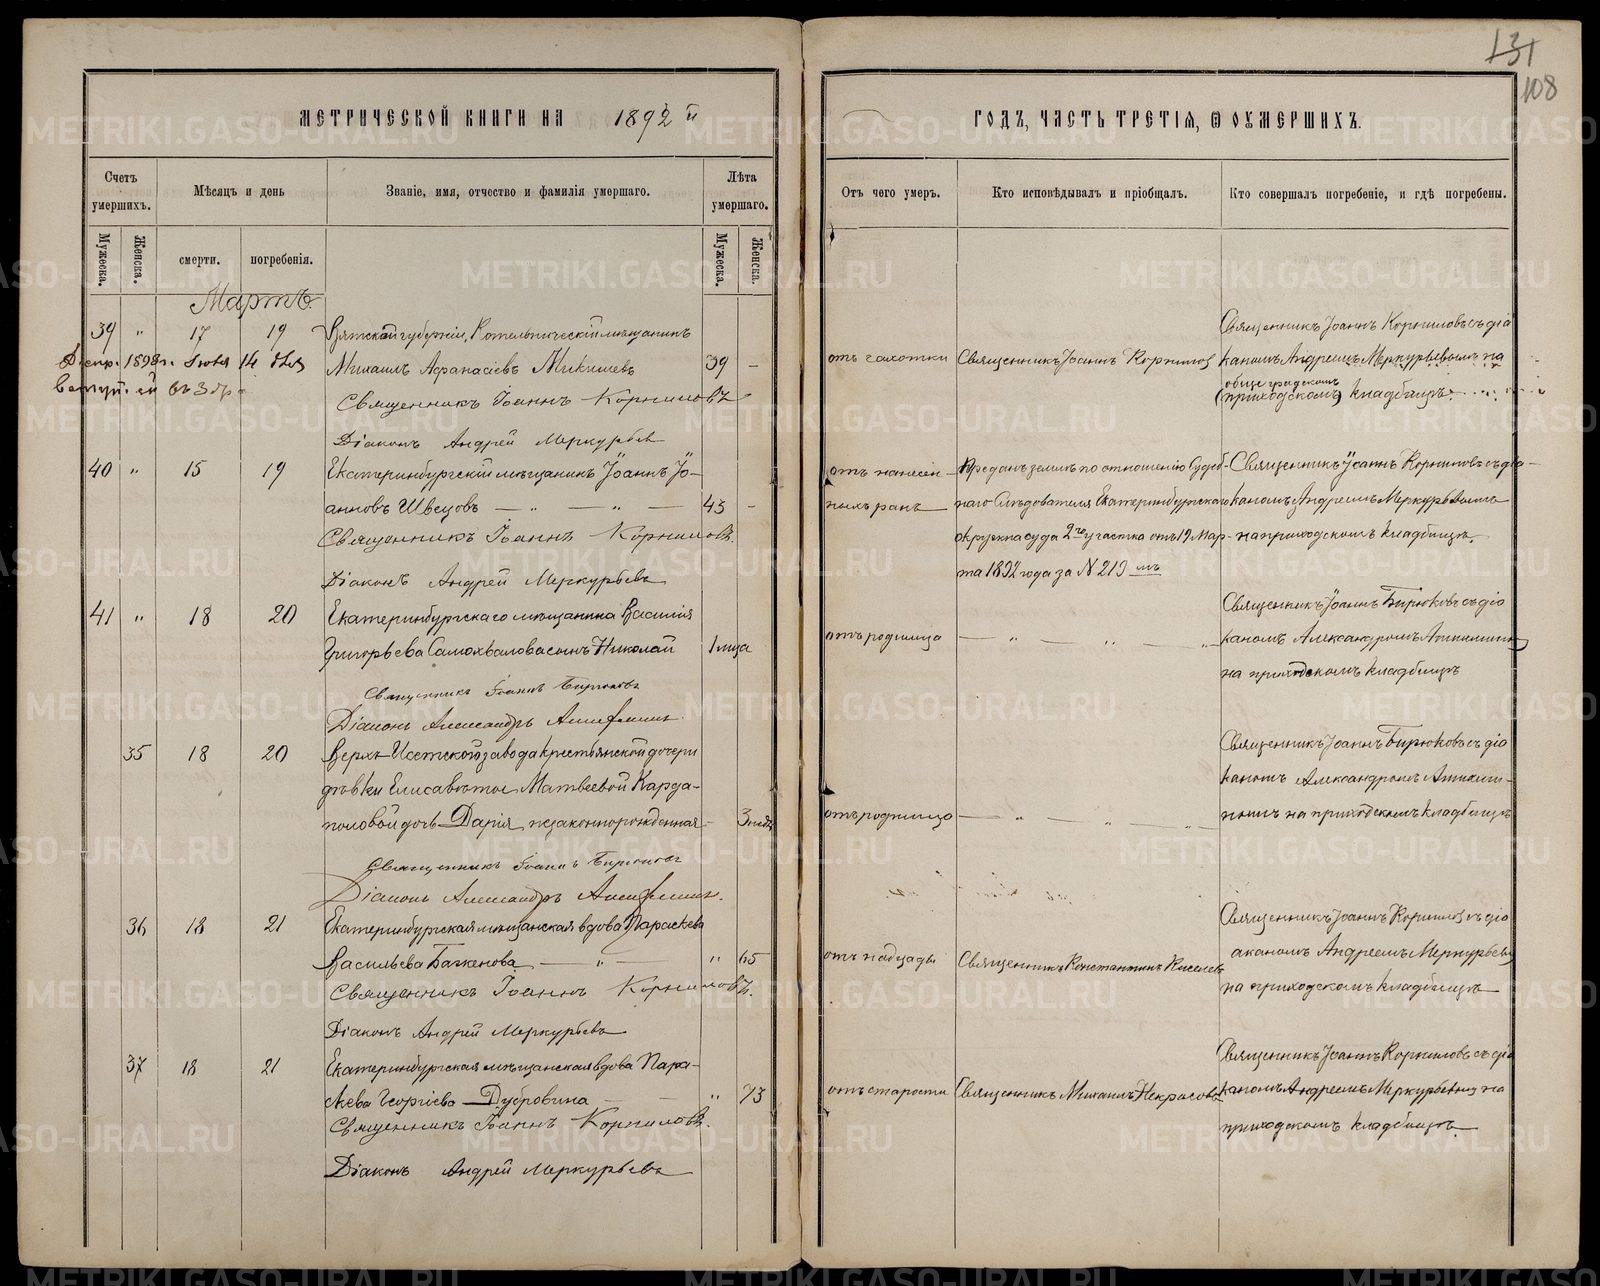 131
108
МЕТРИЧЕСКОЙ КНИГИ НА 1892 й
ГОДЪ, ЧАСТЬ ТРЕТІЯ, Ѿ ОУМЕРШИХЪ.
Счетъ умершихъ.
Мѣсяцъ и день
Званіе, имя, отчество и фамилія умершаго.
Лѣта умершаго.
Отъ чего умеръ.
Кто исповѣдывалъ и пріобщалъ.
Кто совершалъ погребеніе, и гдѣ погребены.
Мужеска.
Женска.
смерти.
погребенія.
Мужеска.
Женска.
Мартъ.
39 " 17 19 Вятской губерніи, Котельническій мѣщанинъ
Михаилъ Афанасіевъ Микишевъ 39 -
отъ чахотки
Священникъ Іоаннъ Корниловъ
Священникъ Іоаннъ Корниловъ съ діа
кономъ Андреемъ Меркурьевымъ на
обще градскомъ
(приходскомъ) кладбищѣ.
1898 г. Іюня 14 дня
Священникъ Іоаннъ Корниловъ
Діаконъ Андрей Меркурьевъ
40 " 15 19 Екатеринбургскій мѣщанинъ Іоаннъ Іо-
анновъ Швецовъ — " — " — 43 -
отъ нанесен-
ныхъ ранъ
Преданъ землѣ по отношенію Судеб-
наго Слѣдователя Екатеринбургскаго
окружна суда 2го участка отъ 19 Мар-
та 1892 года за N 213 мъ
Священникъ Іоаннъ Корниловъ съ діа-
кономъ Андреемъ Меркурьевымъ
на приходскомъ кладбищѣ.
Священникъ Іоаннъ Корниловъ.
Діаконъ Андрей Меркурьевъ
41 " 18 20 Екатеринбургскаго мѣщанина Василія
Григорьева Самохвалова сынъ Николай 1 мѣца
отъ родимца
— " — " — "
Священникъ Іоаннъ Бирюковъ съ діа
кономъ Александромъ
на приходскомъ кладбищѣ
Священникъ Іоаннъ Бирюковъ
Діаконъ Александръ
35 18 20 Верхъ-Исетскаго завода крестьянской дочери
дѣвки Елисаветы Матвеевой Карда-
половой дочь Дарія незаконнорожденная
отъ родимца
— " — " — "
Священникъ Іоаннъ Бирюковъ съ діа
кономъ Александромъ
на приходскомъ кладбищѣ
Священникъ Іоаннъ Бирюковъ
Діаконъ Александръ
36 18 21 Екатеринбургская мѣщанская вдова Параскева
Васильева Баженова — " — " 65
отъ надсады
Священникъ Константинъ Киселевъ
Священникъ Іоаннъ Корниловъ съ діа
кономъ Андреемъ Меркурьевымъ
на приходскомъ кладбищѣ
Священникъ Іоаннъ Корниловъ.
Діаконъ Андрей Меркурьевъ
37 18 21 Екатеринбургская мѣщанская вдова Пара-
скева Георгіева Дубровина — — " 73
отъ старости
Священникъ Михаилъ Некрасовъ
Священникъ Іоаннъ Корниловъ съ діа
кономъ Андреемъ Меркурьевымъ на
приходскомъ кладбищѣ.
Священникъ Іоаннъ Корниловъ.
Діаконъ Андрей Меркурьевъ
METRIKI.GASO-URAL.RU